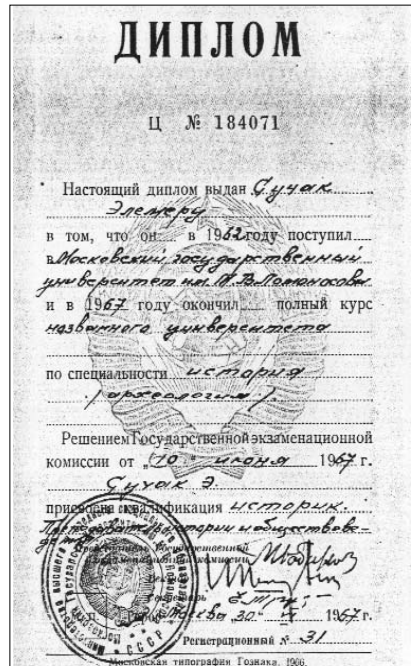 ДИПЛОМ
Ц № 184071
Настоящий диплом выдан Сучак
Элемеру
в том, что он в 1962 году поступил
в Московский государственный
университет им. М.В. Ломоносова
и в 1967 году окончил полный курс
названного университета
по специальности история
/археология/.
Решением Государственной экзаменационной
комиссии от „10“ июня 1967 г.
Сучак Э.
присвоена квалификация историк.
Преподаватель истории и обществове-
дения
Председатель Государственной
экзаменационной комиссии
Ректор
Секретарь
Город Москва 30 1967 г.
СССР
Регистрационный № 31
Московская типография Гознака. 1966.